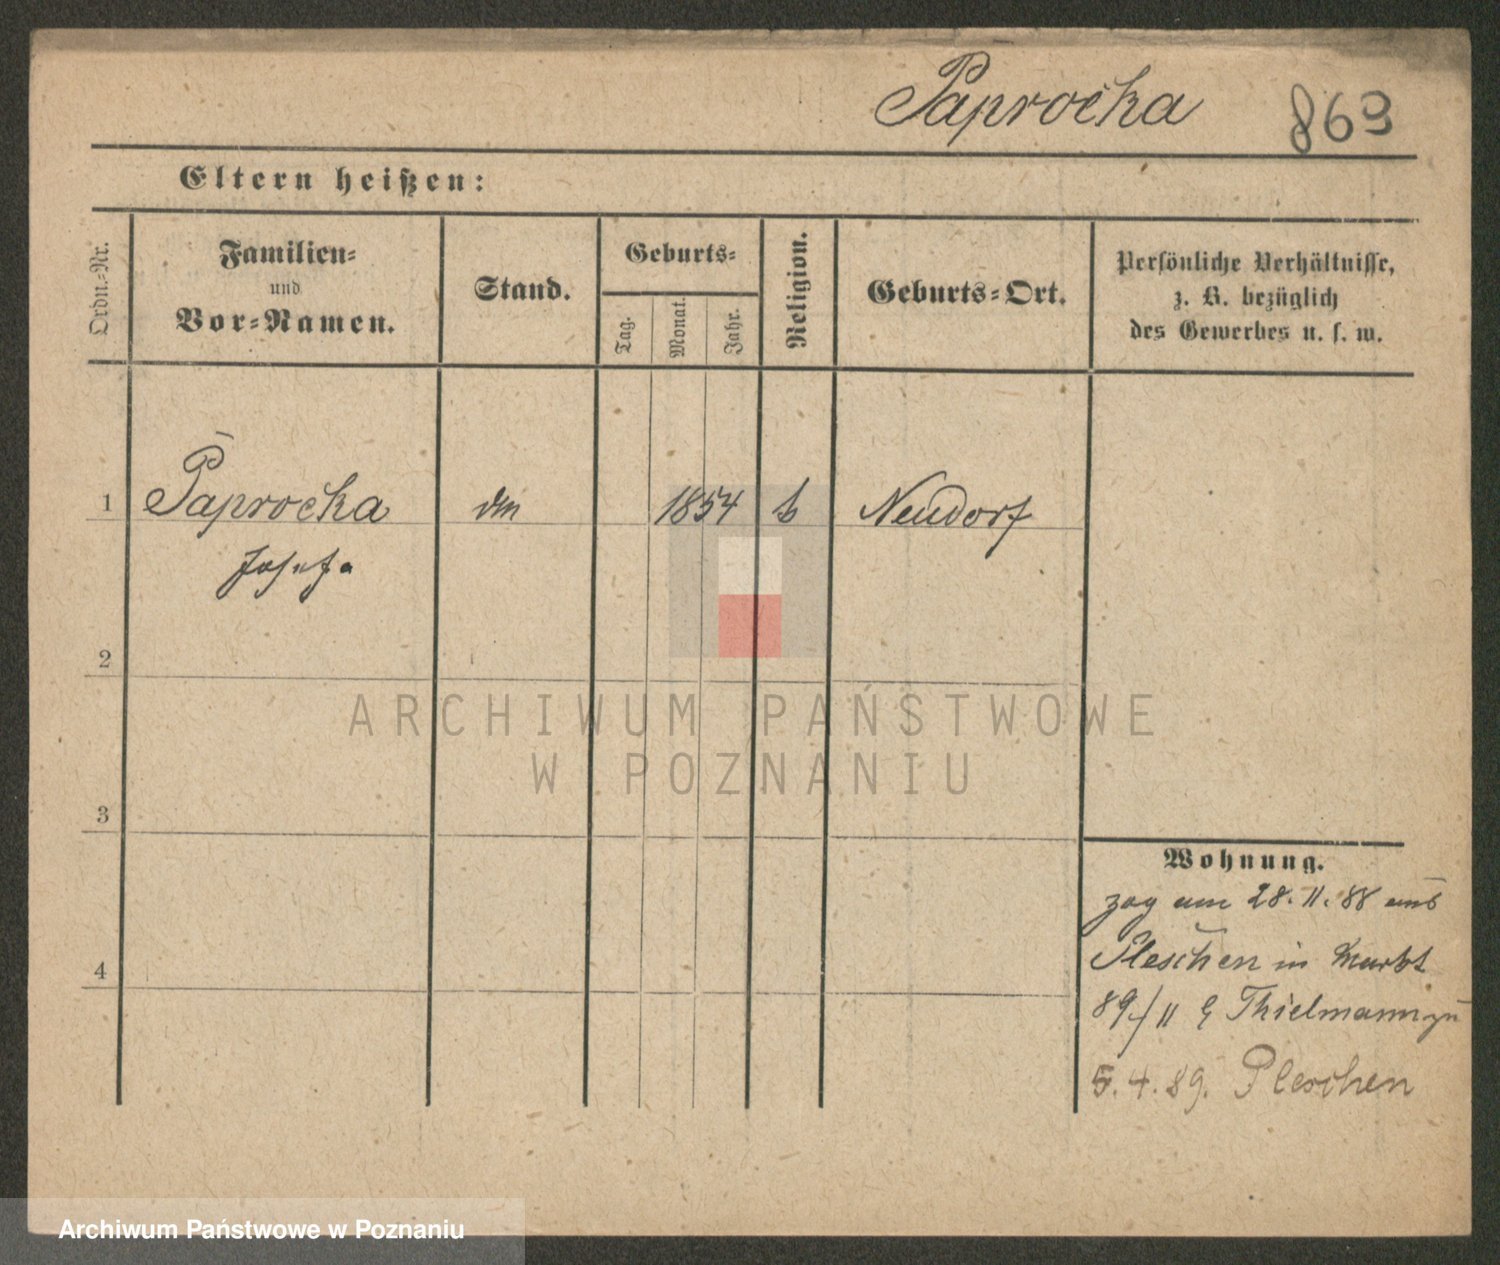 Paprocka 869
Eltern heißen:
Ordn.-Nr.
Familien-
und
Vor-Namen.
Stand.
Geburts-
Tag.
Monat.
Jahr.
Religion.
Geburts-Ort.
Persönliche Verhältnisse,
z. B. bezüglich
des Gewerbes u. s. w.
1 Paprocka 1854 Neudorf
Josefa
2
3
4
Wohnung.
zog am 28. 11. 88 aus
Pleschen in Markt
89/11 Thielmann zu
5. 4. 89. Pleschen
ARCHIWUM PAŃSTWOWE
W POZNANIU
Archiwum Państwowe w Poznaniu